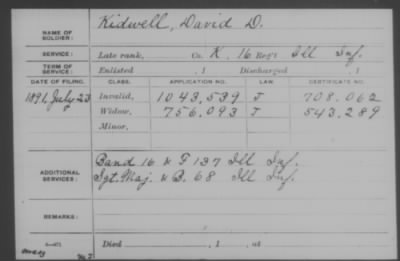 NAME OF SOLDIER: Kidwell, David D.
SERVICE: Late rank, Co. K, 16 Reg't Ill Inf.
TERM OF SERVICE: Enlisted , 1 Discharged , 1
DATE OF FILING. CLASS. APPLICATION NO. LAW. CERTIFICATE NO.
1891, July 23 Invalid, 1043,539 J 708,062
Widow, 756,093 J 543,289
Minor,
ADDITIONAL SERVICES: Band 16 & F 137 Ill Inf.
Sgt. Maj. & B. 68 Ill Inf.
REMARKS:
Died , 1 , at